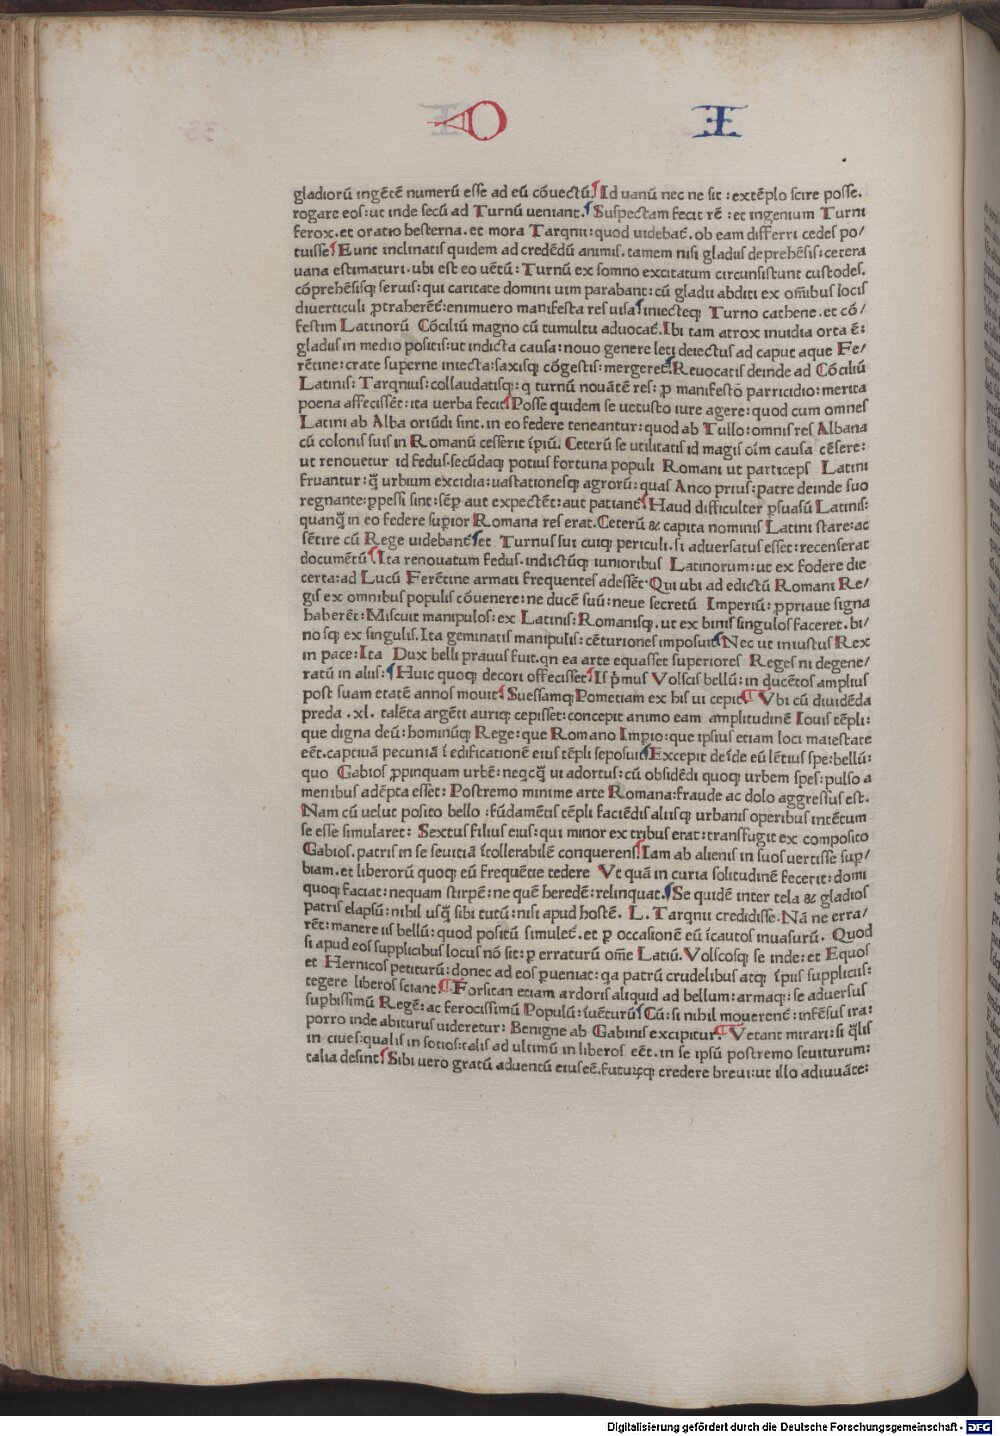 gladiorū ingētē numerū esse ad eū cōuectū. Id uanū nec ne sit : extēplo scire posse.
rogare eos: ut inde secū ad Turnū ueniant. Suspectam fecit rē : et ingenium Turni
ferox. et oratio hesterna. et mora Tarqnii: quod uidebať. ob eam differri cedes po/
tuisse Eunt inclinatis quidem ad credēdū animis. tamen nisi gladiis deprehēsis: cetera
uana estimaturi. ubi est eo uētū: Turnū ex somno excitatum circunsistunt custodes.
cōprehēsisq; seruis: qui caritate domini uim parabant: cū gladii abditi ex om̄ibus locis
diuerticuli ꝓtraherēť: enimuero manifesta res uisa iniecteq; Turno cathene. et cō/
festim Latinorū Cōciliū magno cū tumultu aduocať. Ibi tam atrox inuidia orta ē:
gladiis in medio positis: ut indicta causa: nouo genere leti deiectus ad caput aque Fe/
rētine: crate superne iniecta: saxisq; cōgestis: mergereť. Reuocatis deinde ad Cōciliū
Latinis: Tarqnius: collaudatisq;: q turnū nouātē res: ꝓ manifesto parricidio: merita
poena affecissēt: ita uerba fecit Posse quidem se uetusto iure agere: quod cum omnes
Latini ab Alba oriūdi sint. in eo federe teneantur: quod ab Tullo: omnis res Albana
cū colonis suis in Romanū cesserit īꝑiū. Ceterū se utilitatis id magis oīm causa cēsere:
ut renouetur id fedus. secūdaq; potius fortuna populi Romani ut particeps Latini
fruantur: q̄ urbium excidia: uastationesq; agrorū: quas Anco prius: patre deinde suo
regnante: ꝑpessi sint: sēꝑ aut expectēt: aut patianť Haud difficulter ꝑsuasū Latinis:
quanq̄ in eo federe suꝑior Romana res erat. Ceterū & capita nominis Latini stare: ac
sētire cū Rege uidebanť et Turnus sui cuiq; periculi. si aduersatus esset: recens erat
documētū. Ita renouatum fedus. indictūq; iunioribus Latinorum: ut ex fodere die
certa: ad Lucū Ferētine armati frequentes adessēt. Qui ubi ad edictū Romani Re/
gis ex omnibus populis cōuenere: ne ducē suū: neue secretū Imperiū: ꝓpriaue signa
haberēt: Miscuit manipulos: ex Latinis: Romanisq;. ut ex binis singulos faceret. bi/
nosq; ex singulis. Ita geminatis manipulis: cēturiones imposuit Nec ut iniustus Rex
in pace: Ita Dux belli prauus fuit. qn ea arte equasset superiores Reges ni degene/
ratū in aliis: Huic quoq; decori offecisset Is pͥmus Volscis bellū: in ducētos amplius
post suam etatē annos mouit Suessamq; Pometiam ex his ui cepit Vbi cū diuidēda
preda .xl. talēta argēti auriq; cepisset: concepit animo eam amplitudinē Iouis tēpli:
que digna deū: hominūq; Rege: que Romano Impio: que ipsius etiam loci maiestate
eēt. captiuā pecuniā ī edificationē eius tēpli seposuit Excepit deīde eū lētius spe: bellū:
quo Gabios ꝓpinquam urbē: neqcq̄ ui adortus: cū obsidēdi quoq; urbem spes: pulso a
menibus adēpta esset: Postremo minime arte Romana: fraude ac dolo aggressus est.
Nam cū uelut posito bello : fūdamētis tēpli faciēdis aliisq; urbanis operibus intētum
se esse simularet: Sextus filius eius: qui minor ex tribus erat: transfugit ex composito
Gabios. patris in se seuitiā ītollerabilē conquerens. Iam ab alienis in suos uertisse suꝑ/
biam. et liberorū quoq; eū frequētie tedere Vt quā in curia solitudinē fecerit: domi
quoq; faciat: nequam stirpē: ne quē heredē: relinquat. Se quidē inter tela & gladios
patris elapsū: nihil usq̄ sibi tutū: nisi apud hostē. L. Tarqnii credidisse. Nā ne erra/
rēt: manere iis bellū: quod positū simuleť. et ꝑ occasionē eū īcautos inuasurū. Quod
si apud eos supplicibus locus nō sit: ꝑ erraturū om̄e Latiū. Volscosq; se inde: et Equos
et Hernicos petiturū: donec ad eos ꝑueniat: qa patrū crudelibus atq; īpiis suppliciis:
tegere liberos sciant. Forsitan etiam ardoris aliquid ad bellum: armaq;: se aduersus
suꝑbissimū Regē: ac ferocissimū Populū: īuēturū Cū: si nihil mouerenť: infēsus ira:
porro inde abiturus uideretur: Benigne ab Gabinis excipitur. Vetant mirari: si q̄lis
in ciues: qualis in sotios: talis ad ultimū in liberos eēt. in se ipsū postremo seuiturum:
talia desint Sibi uero gratū aduentū eius eē. futurūq; credere breui: ut illo adiuuāte:
Digitalisierung gefördert durch die Deutsche Forschungsgemeinschaft - DFG